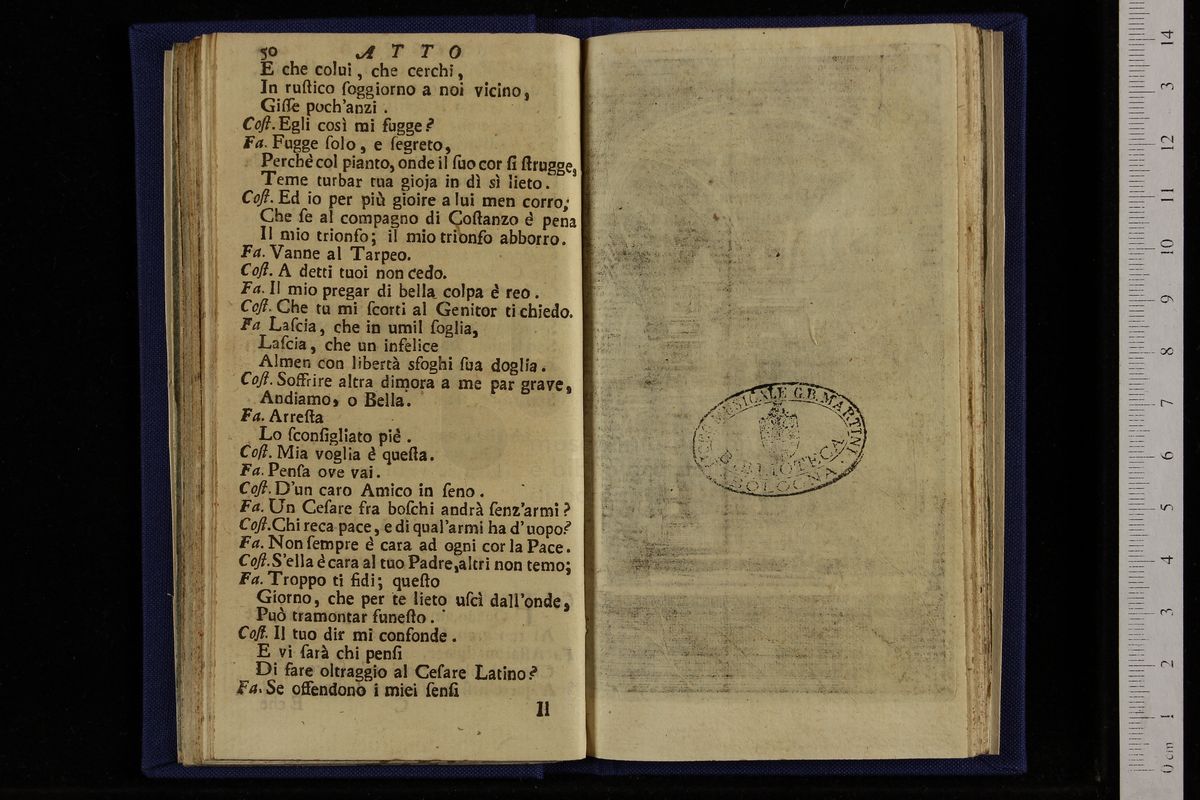 50 ATTO
E che colui, che cerchi,
In ruſtico ſoggiorno a noi vicino,
Giſſe poch'anzi.
Coſt. Egli così mi fugge?
Fa. Fugge ſolo, e ſegreto,
Perchè col pianto, onde il ſuo cor ſi ſtrugge,
Teme turbar tua gioja in dì sì lieto.
Coſt. Ed io per più gioire a lui men corro;
Che ſe al compagno di Coſtanzo è pena
Il mio trionfo; il mio trionfo abborro.
Fa. Vanne al Tarpeo.
Coſt. A detti tuoi non cedo.
Fa. Il mio pregar di bella colpa è reo.
Coſt. Che tu mi ſcorti al Genitor ti chiedo.
Fa Laſcia, che in umil ſoglia,
Laſcia, che un infelice
Almen con libertà sfoghi ſua doglia.
Coſt. Soffrire altra dimora a me par grave,
Andiamo, o Bella.
Fa. Arreſta
Lo ſconſigliato piè.
Coſt. Mia voglia è queſta.
Fa. Penſa ove vai.
Coſt. D'un caro Amico in ſeno.
Fa. Un Ceſare fra boſchi andrà ſenz'armi?
Coſt. Chi reca pace, e di qual'armi ha d'uopo?
Fa. Non ſempre è cara ad ogni cor la Pace.
Coſt. S'ella è cara al tuo Padre, altri non temo;
Fa. Troppo ti fidi; queſto
Giorno, che per te lieto uſcì dall'onde,
Può tramontar funeſto.
Coſt. Il tuo dir mi confonde.
E vi ſarà chi penſi
Di fare oltraggio al Ceſare Latino?
Fa. Se offendono i miei ſenſi
Il
MUSICALE G.B. MARTINI
BIBLIOTECA
BOLOGNA
0 cm 1 2 3 4 5 6 7 8 9 10 11 12 3 14